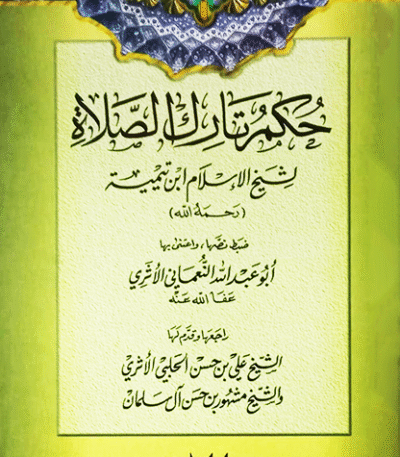 حُكْمُ تَارِكِ الصَّلَاةِ
لِشَيْخِ الإِسْلَامِ ابْنِ تَيْمِيَة
(رَحِمَهُ اللهُ)
ضَبَطَ نَصَّهَا، وَاعْتَنَى بِهَا
أَبُو عَبْدِ اللهِ النُّعْمَانِي الأَثَرِي
عَفَا اللهُ عَنْهُ
رَاجَعَهَا وَقَدَّمَ لَهَا
الشَّيْخ عَلِي بْن حَسَن الحَلَبِي الأَثَرِي
وَالشَّيْخ مَشْهُور بْن حَسَن آل سَلْمَان